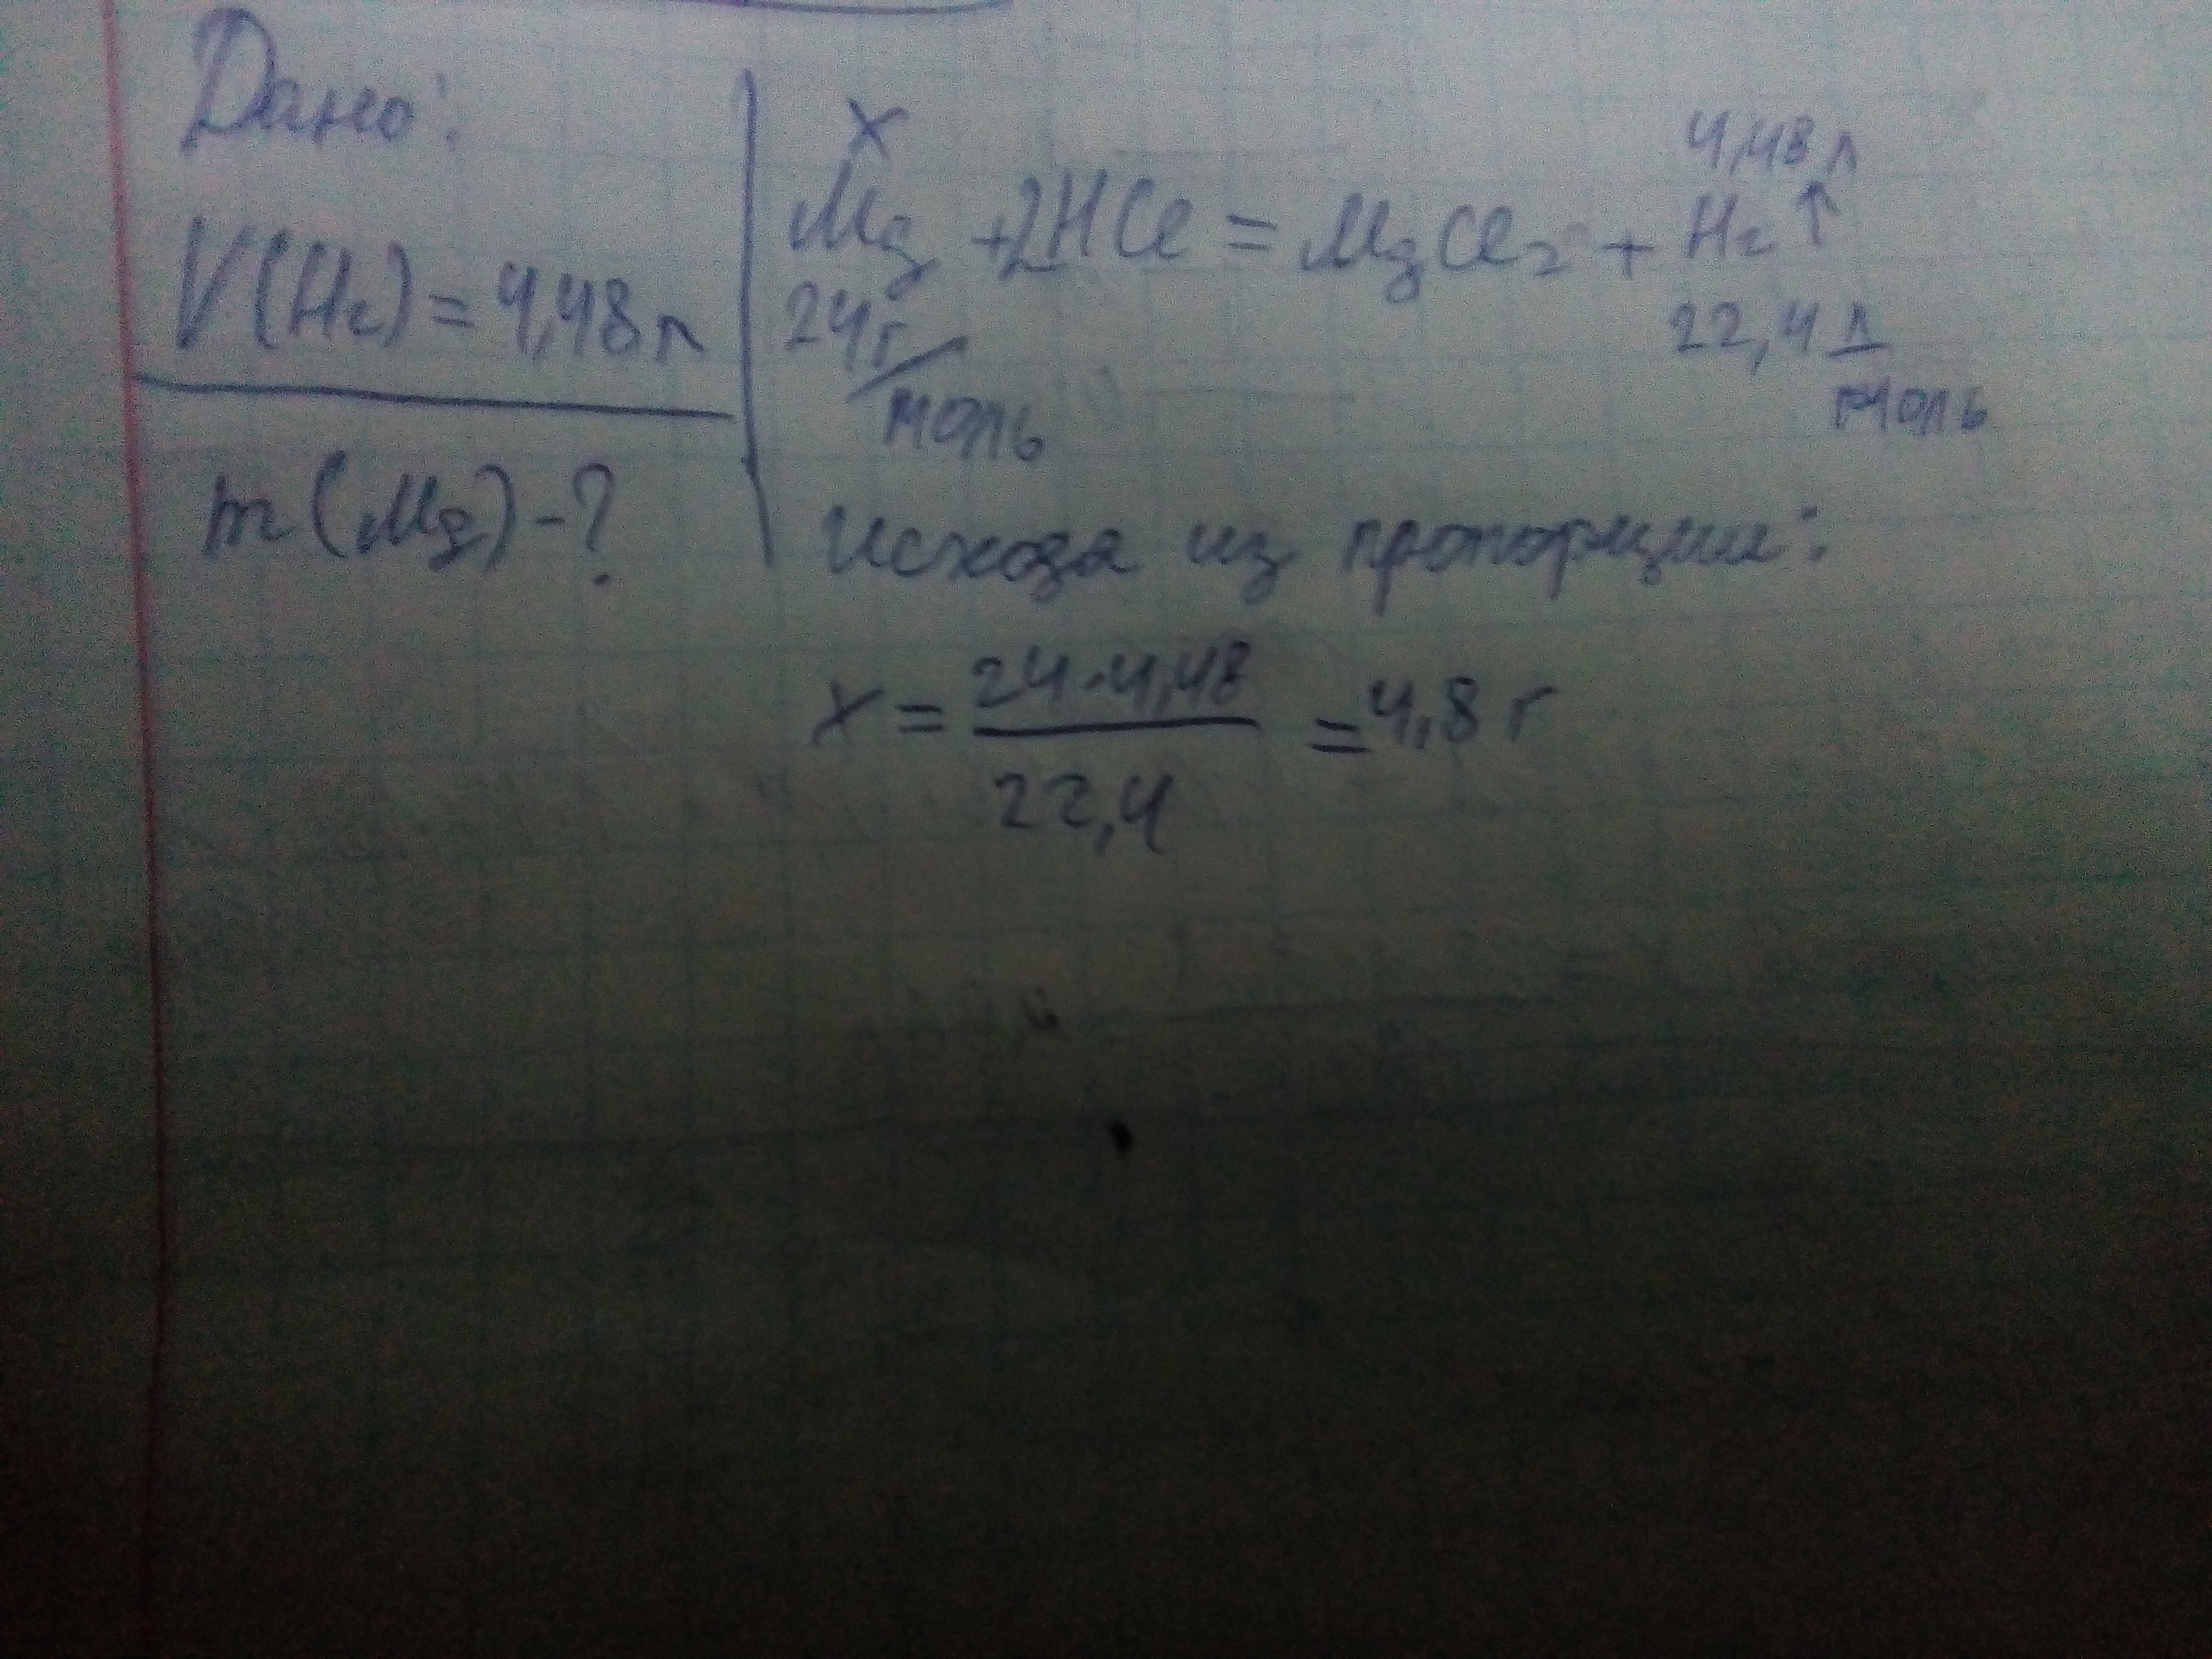 Дано:
V(H₂) = 4,48 л
m(Mg) - ?
x
4,48 л
Mg + 2HCl = MgCl₂ + H₂↑
24 г/моль
22,4 л/моль
исходя из пропорции:
x = 24·4,48 / 22,4 = 4,8 г